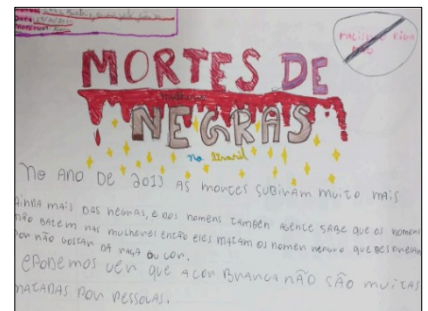 RACISMO
NÃO
MORTES DE
mulheres
NEGRAS
no Brasil
NO ANO DE 2013 AS MORTES SUBIRAM MUITO MAIS
AINDA MAIS DAS NEGRAS, E DOS HOMENS TAMBÉN AGENCE SABE QUE OS HOMENS
NÃO BATEM NAS MULHERES ENTÃO ELES MATAM OS HOMEN NEGRO QUE DESPREZAM
POR NÃO GOSTAR DA RAÇA OU COR.
EPODEMOS VER QUE ACOR BRANCA NÃO SÃO MUITAS
MATADAS POR PESSOAS.